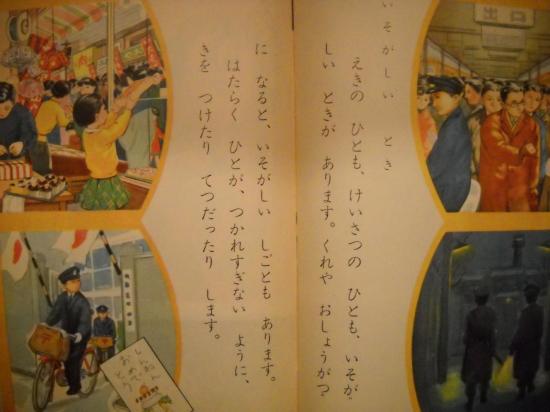 いそがしい とき
えきの ひとも、けいさつの ひとも、いそが
しい ときが あります。くれや おしょうがつ
に なると、いそがしい しごとも あります。
はたらく ひとが、つかれすぎない ように、
きを つけたり てつだったり します。
出口
しんねん
おめで
とう